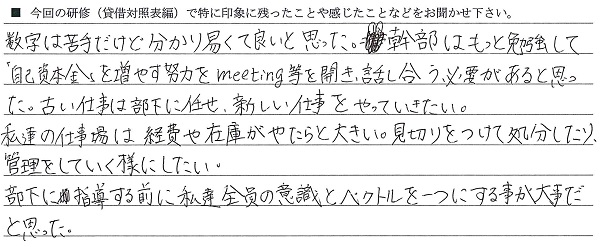 ■ 今回の研修（貸借対照表編）で特に印象に残ったことや感じたことなどをお聞かせ下さい。
数字は苦手だけど分かり易くて良いと思った。幹部はもっと勉強して
「自己資本金」を増やす努力をmeeting等を開き、話し合う必要があると思っ
た。古い仕事は部下に任せ、新しい仕事をやっていきたい。
私達の仕事場は経費や在庫がやたらと大きい。見切りをつけて処分したり、
管理をしていく様にしたい。
部下に指導する前に私達全員の意識とベクトルを一つにする事が大事だ
と思った。